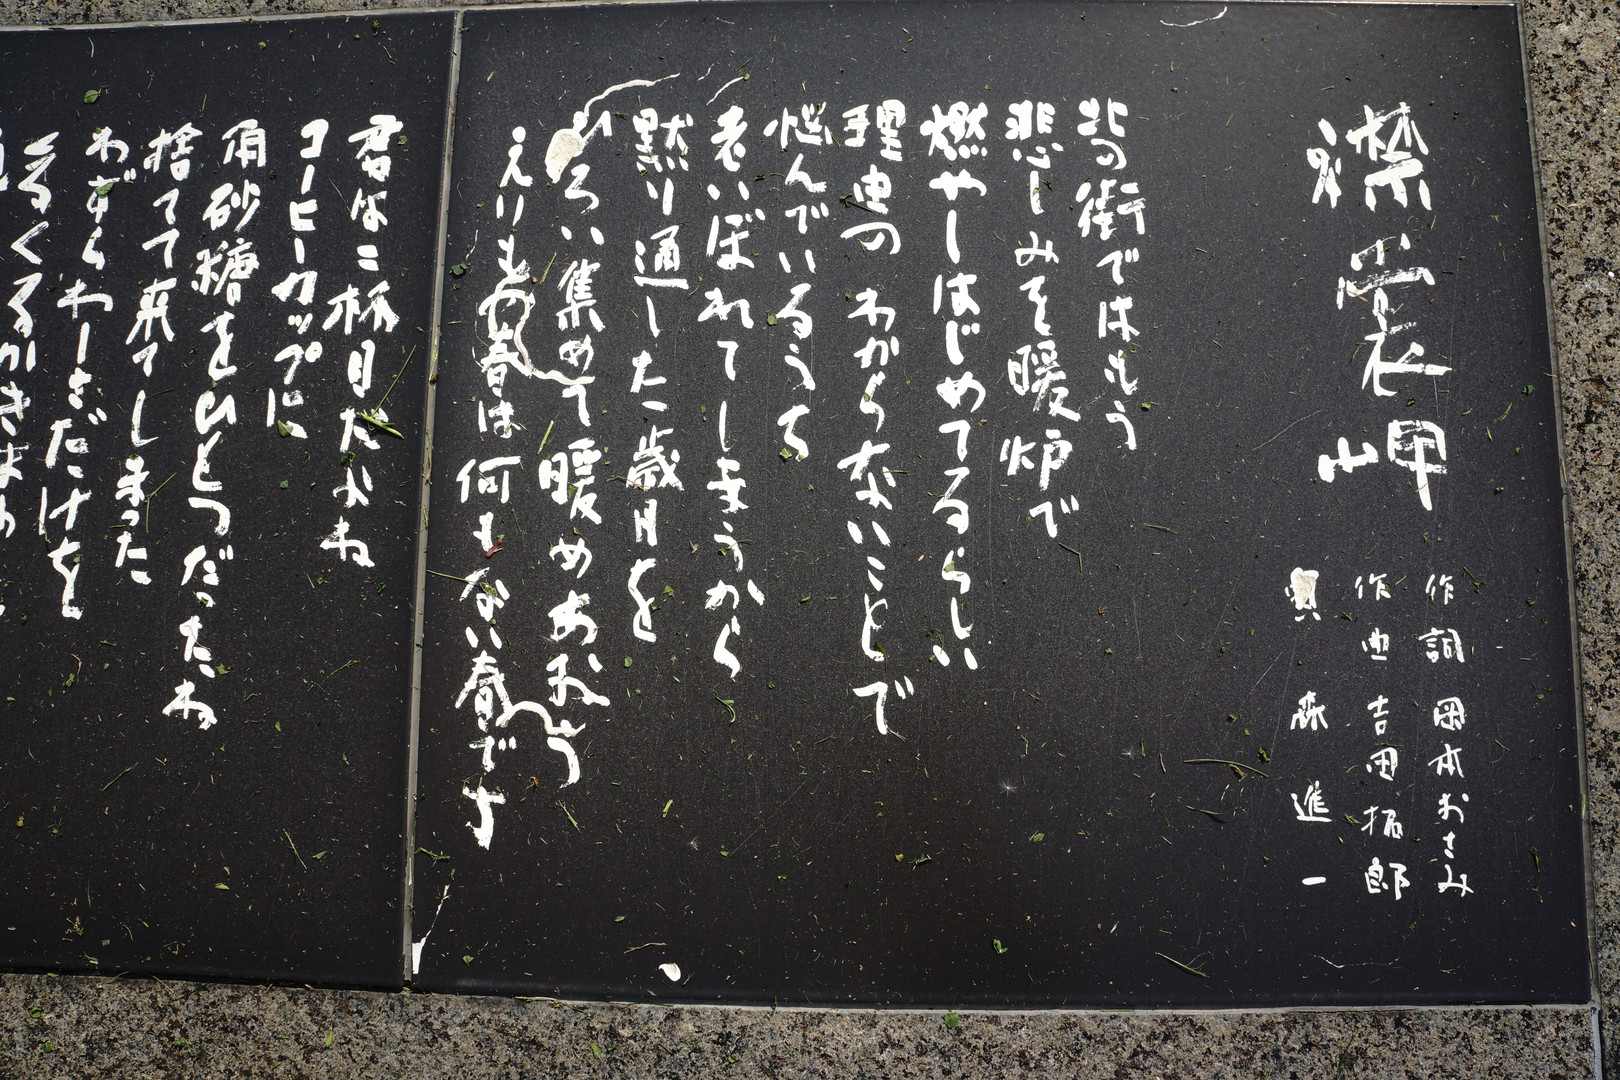 襟裳岬
作詞 岡本おさみ
作曲 吉田拓郎
森進一
北の街ではもう
悲しみを暖炉で
燃やしはじめてるらしい
理由のわからないことで
悩んでいるうち
老いぼれてしまうから
黙り通した歳月を
ひろい集めて暖めあおう
えりもの春は何もない春です
君は二杯目だよね
コーヒーカップに
角砂糖をひとつだったね
捨てて来てしまった
わずらわしさだけを
くるくるかきまわ